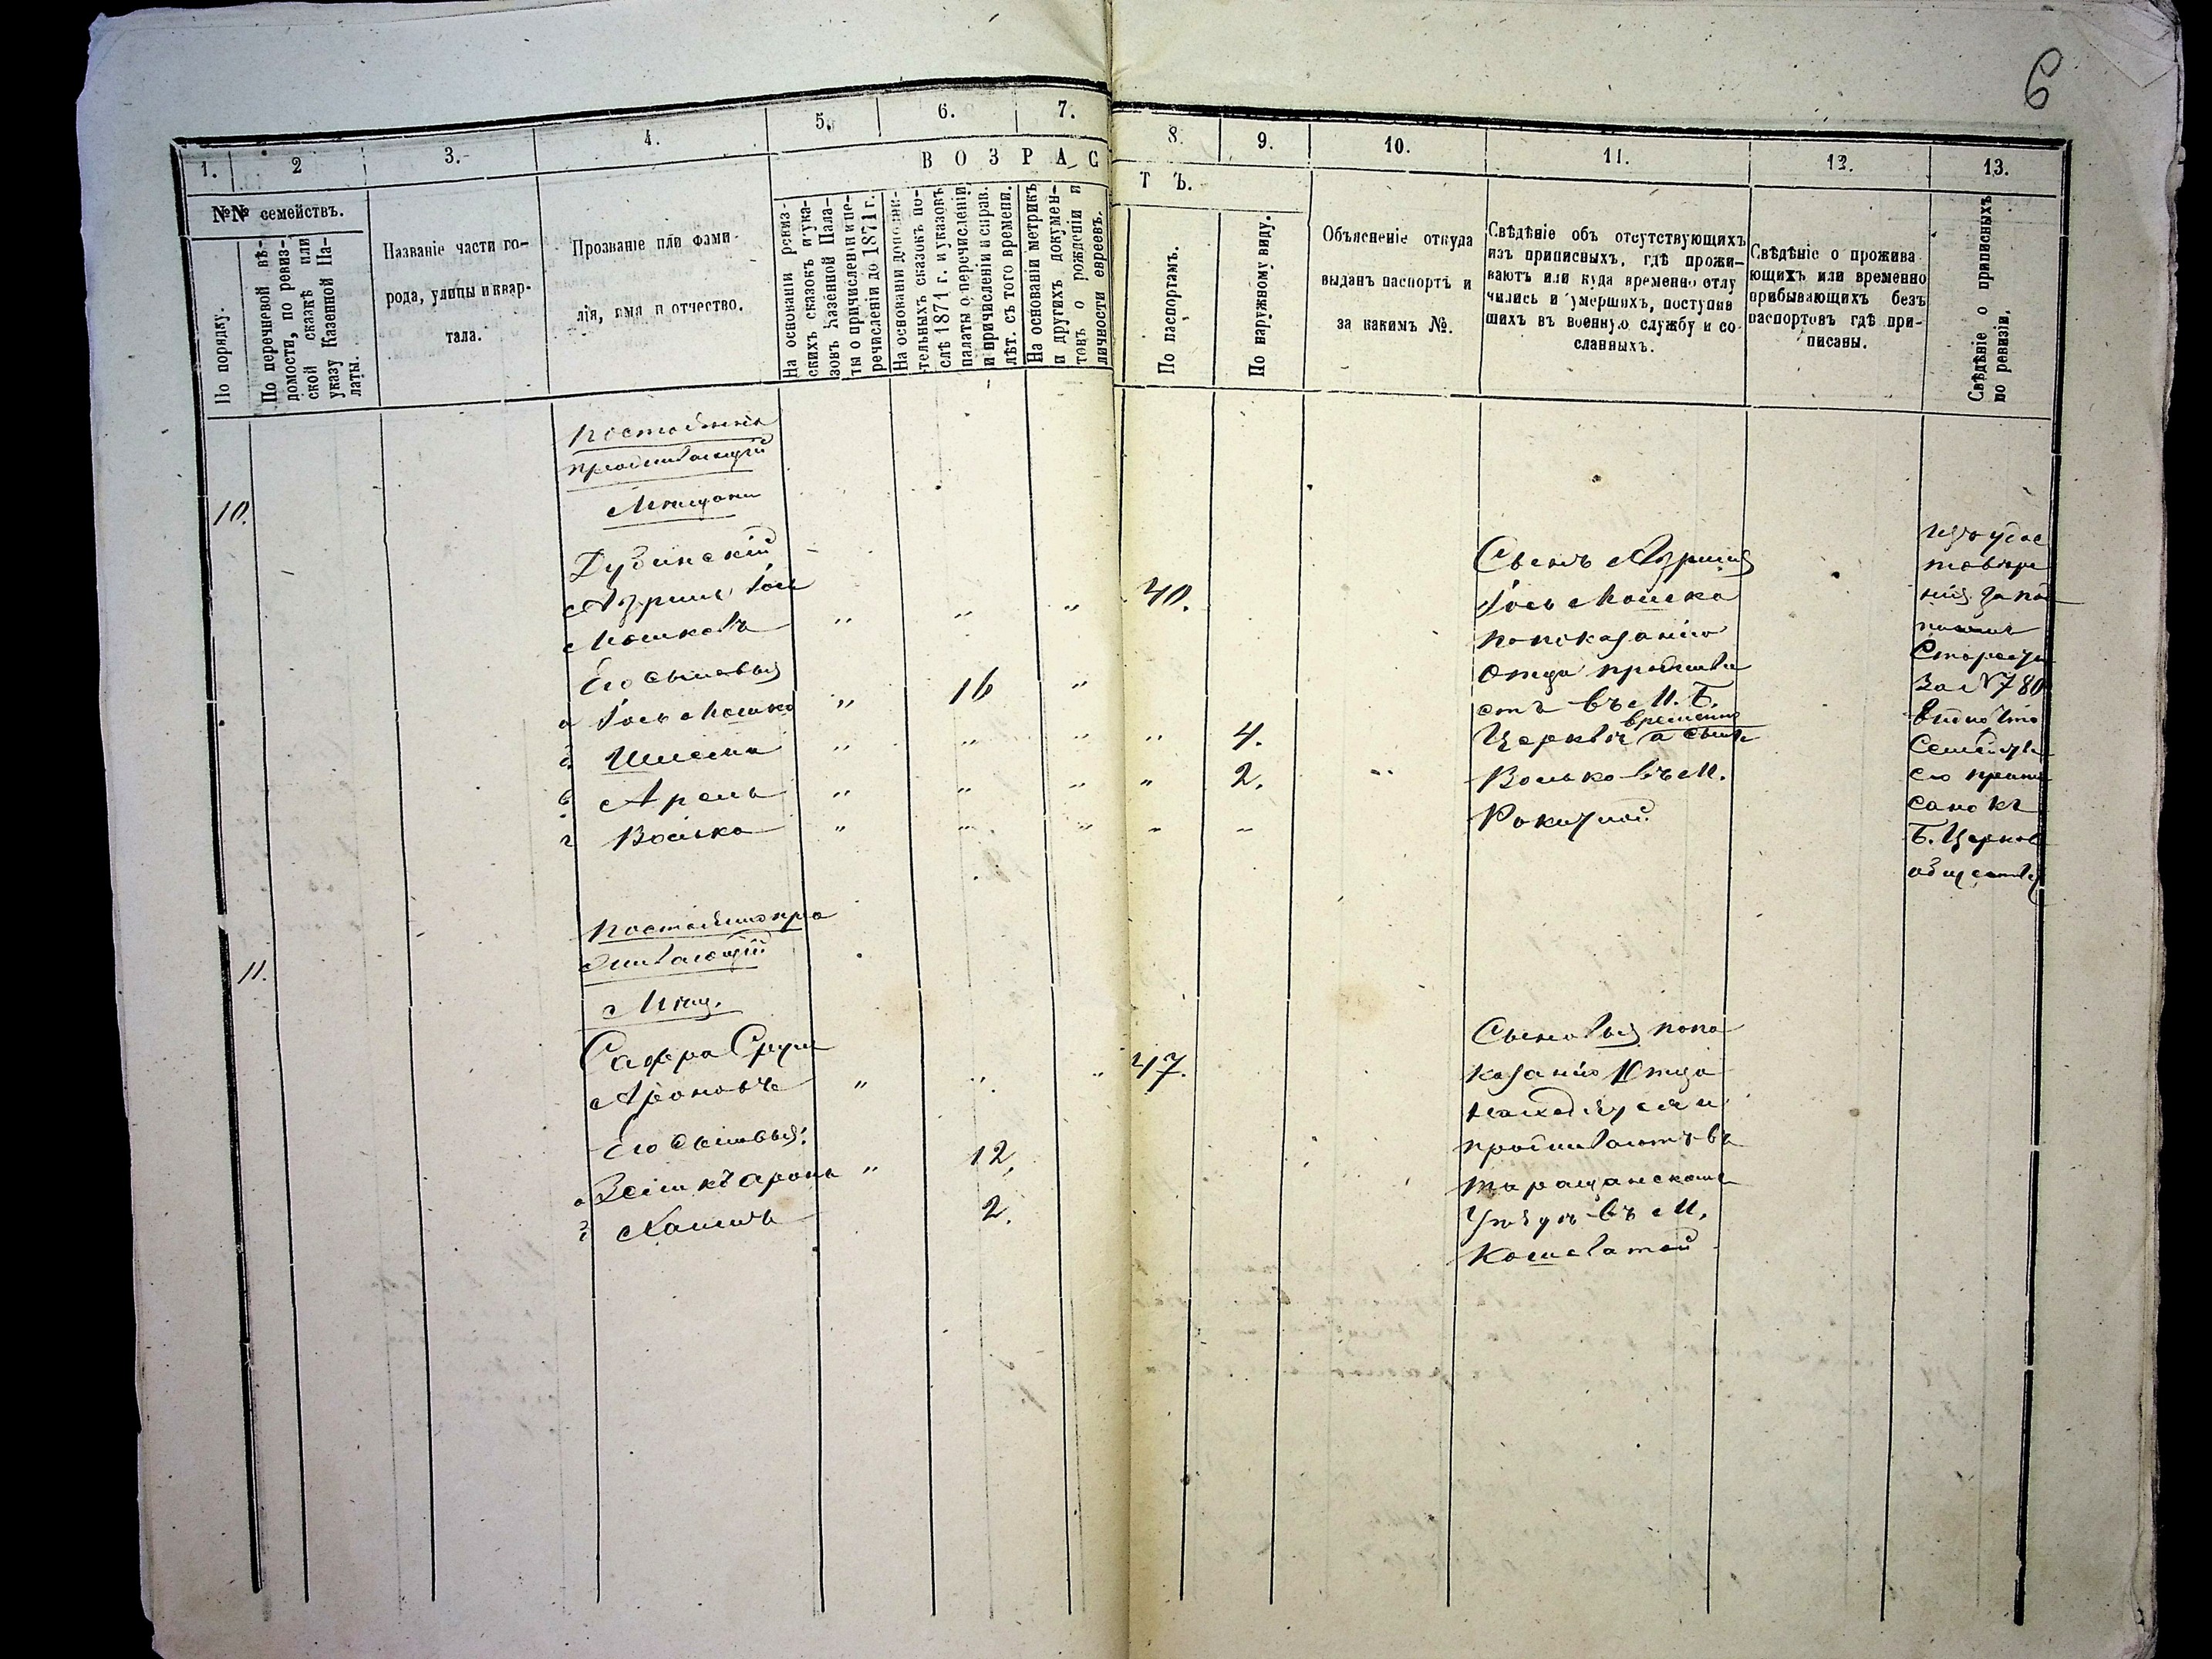 6
1.
2
3.
4.
5.
6.
7.
8.
9.
10.
11.
12.
13.
ВОЗРАСТЪ.
№№ семействъ.
По порядку.
По перечневой вѣ-
домости, по ревиз-
ской сказкѣ или
указу Казенной Па-
латы.
Названіе части го-
рода, улицы и квар-
тала.
Прозваніе или фами-
лія, имя и отчество.
На основаніи ревиз-
скихъ сказокъ и ука-
зовъ Казенной Пала-
ты о причисленіи и пе-
речисленіи до 1871 г.
На основаніи дополни-
тельныхъ сказокъ по-
слѣ 1871 г. и указовъ
палаты о перечисленіи
и причисленіи и справ.
лѣт. съ того времени.
На основаніи метрикъ
и другихъ докумен-
товъ о рожденіи и
личности евреевъ.
По паспортамъ.
По наружному виду.
Объясненіе откуда
выданъ паспортъ и
за какимъ №.
Свѣдѣніе объ отсутствующихъ
изъ приписныхъ, гдѣ прожи-
ваютъ или куда временно отлу
чились и умершихъ, поступив
шихъ въ военную службу и со-
сланныхъ.
Свѣдѣніе о прожива
ющихъ или временно
прибывающихъ безъ
паспортовъ гдѣ при-
писаны.
Свѣдѣніе о приписныхъ
по ревизіи.
10.
проживающій
Мѣщане
Дубинскій
Азриль Іось
Мошковъ " " " 40.
Его сыновья
а Іось Мошко " 16 "
б Шлема " " " " 4.
в Арель " " " " 2. "
г Волько " " " " "
Сынъ Азриля
Іось Мошко
по показанію
отца прожива
етъ въ М. Б.
временно
Церкви а сынъ
Волько въ М.
Рокитной
за № 780
семейство
его припи
сано къ
Б. Церков
обществу
11.
Постоянно про
живающій
Мѣщ.
Сафра Сруль
Ароновъ " " " 47.
Его сыновья:
а Зельикъ Аронъ " 12.
б Хаимъ 2.
Сыновья пока
казанію отца
находятся и
проживаютъ въ
Таращанскомъ
Уѣздѣ въ М.
Кошеватой